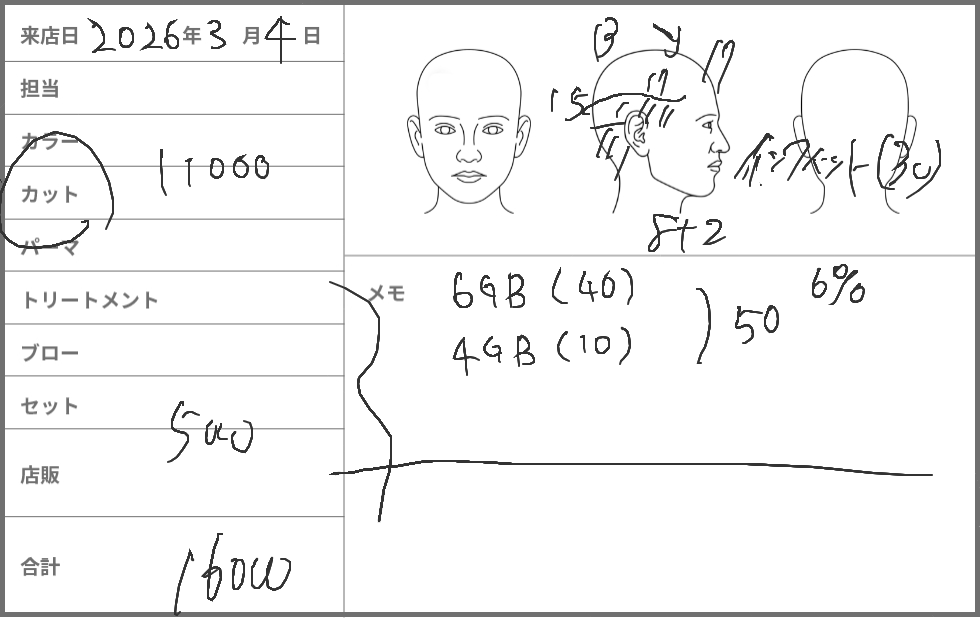 来店日 2026年3月4日
担当
カラー
11000
カット
パーマ
トリートメント
ブロー
セット
5000
店販
合計
16000
B
15
8+2
(30)
メモ
6GB (40)
4GB (10)
50
6%